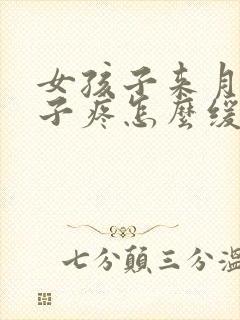 女孩子来月
子疼怎麼缓
七分顛三分溫